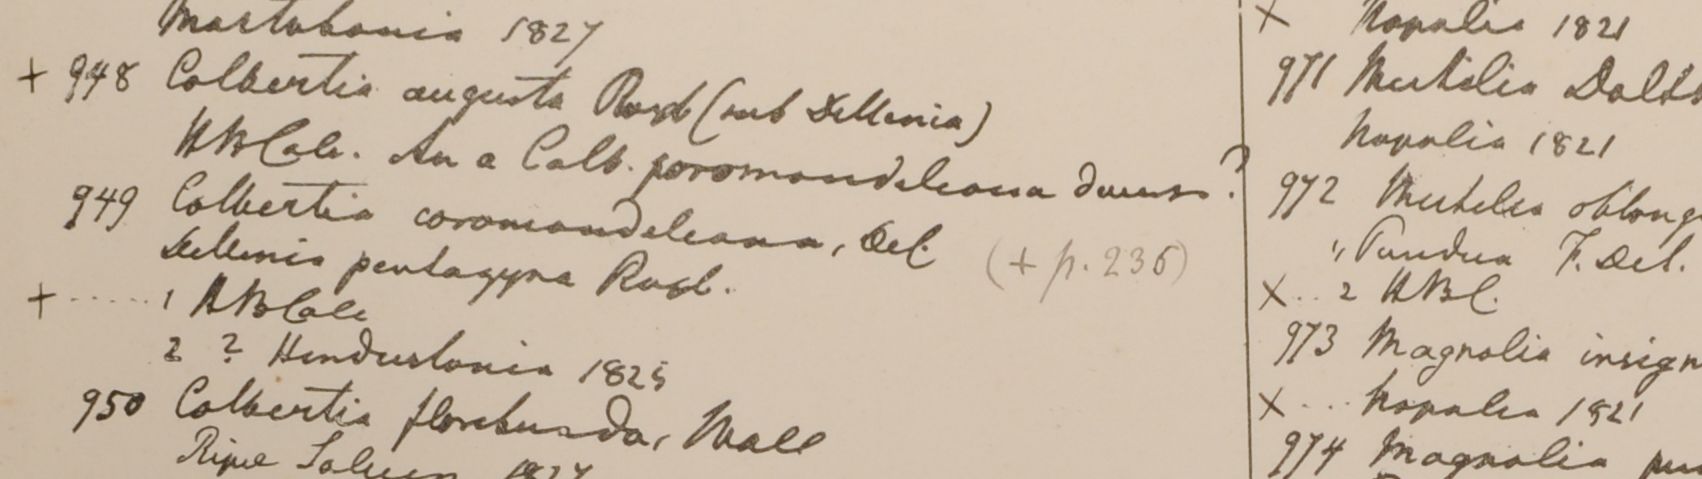 Martabania 1827
+ 948 Colbertia augusta Roxb (sub Dillenia)
HBCalc. An a Colb. coromandeleana diversa?
949 Colbertia coromandeleana, Del. (+ p. 236)
Dillenia pentagyna Roxb.
+ ...... 1 HBCalc
2 ? Hindustania 1825
950 Colbertia floribunda, Wall
Ripae Saluen 1827
X Napalia 1821
971 Michelia Dolts
Napalia 1821
972 Michelia oblong
1, Pundua F. Del.
X .. 2 HBC.
973 Magnolia insign
X ... Napalia 1821
974 Magnolia